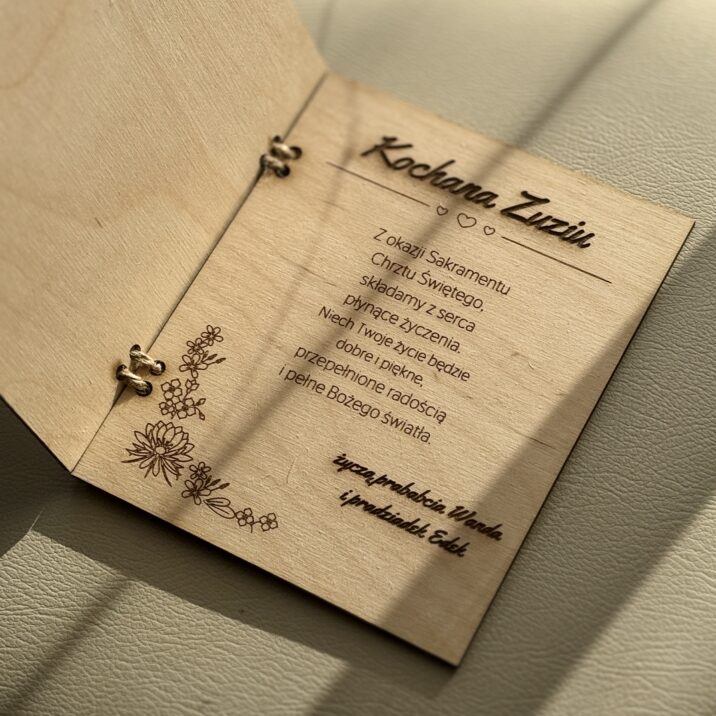 Kochana Zuziu
Z okazji Sakramentu
Chrztu Świętego,
składamy z serca
płynące życzenia.
Niech Twoje życie będzie
dobre i piękne,
przepełnione radością
i pełne Bożego światła.
życzą prababcia Wanda
i pradziadek Edek